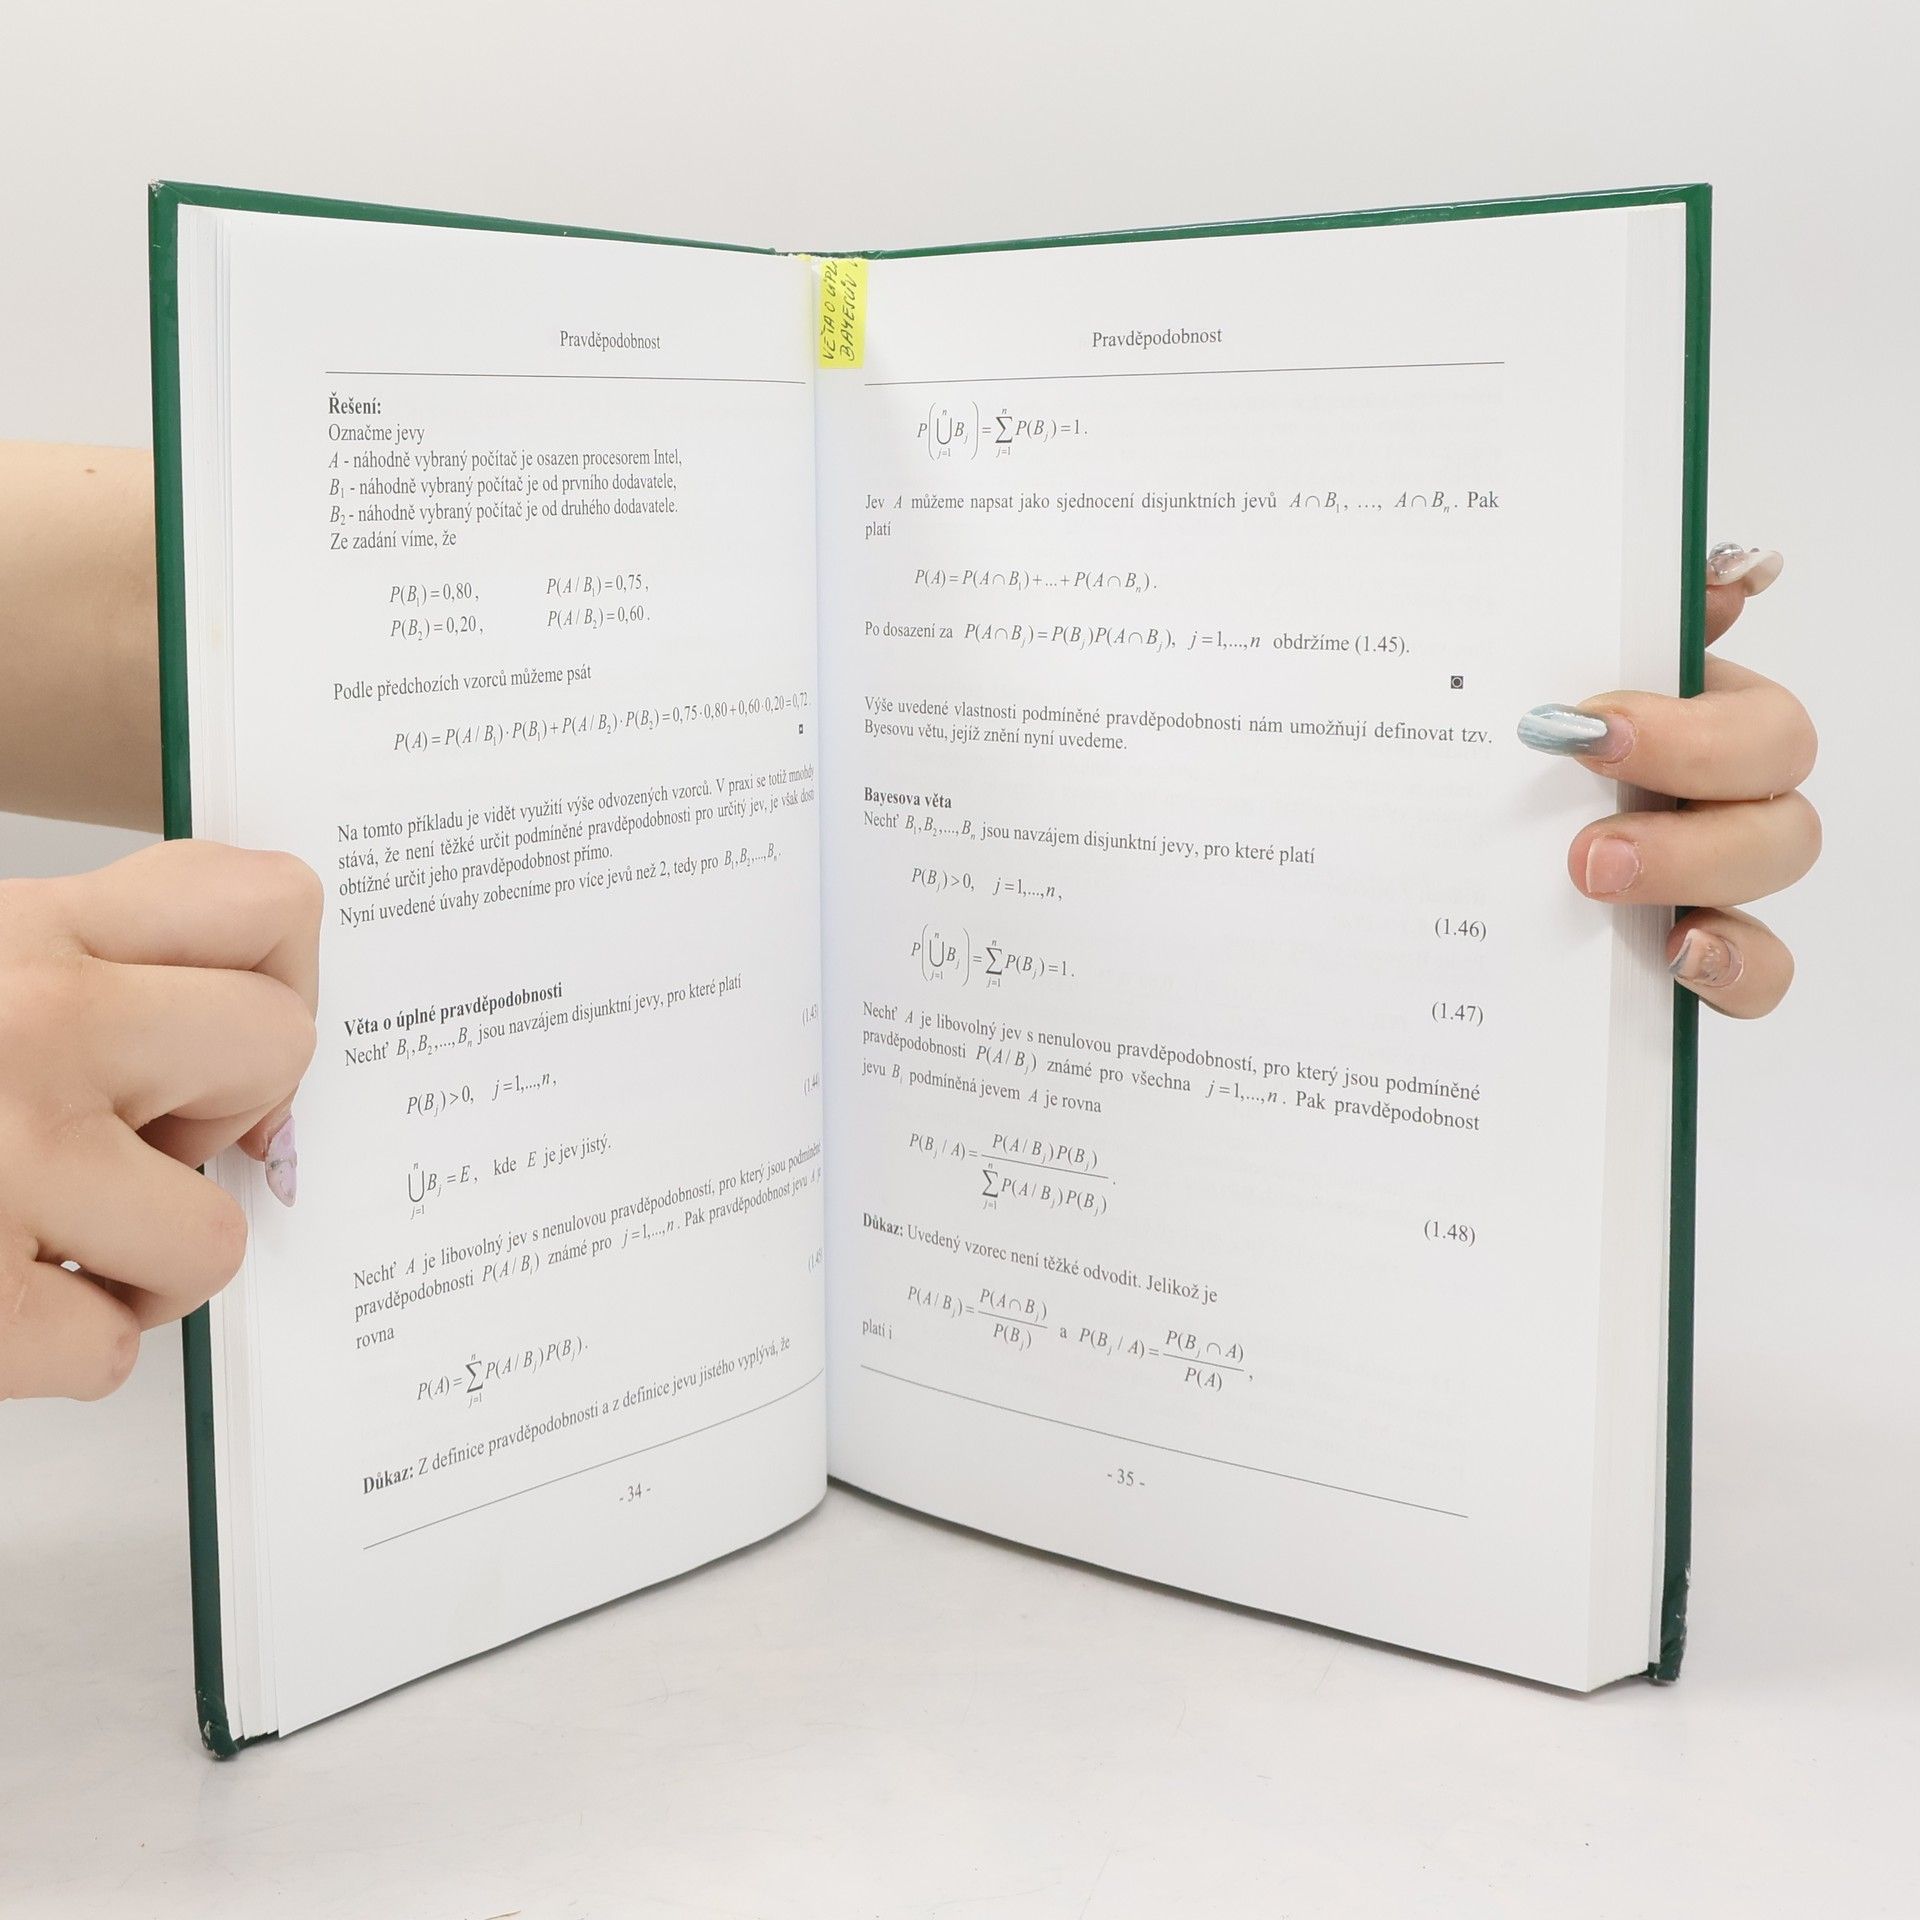 VĚTA O ÚPL
BAYESŮV
Pravděpodobnost
Řešení:
Označme jevy
A - náhodně vybraný počítač je osazen procesorem Intel,
B₁ - náhodně vybraný počítač je od prvního dodavatele,
B₂ - náhodně vybraný počítač je od druhého dodavatele.
Ze zadání víme, že
P(B₁)=0,80, P(A/B₁)=0,75,
P(B₂)=0,20, P(A/B₂)=0,60.
Podle předchozích vzorců můžeme psát
P(A)=P(A/B₁)·P(B₁)+P(A/B₂)·P(B₂)=0,75·0,80+0,60·0,20=0,72.
Na tomto příkladu je vidět využití výše odvozených vzorců. V praxi se totiž mnohdy
stává, že není těžké určit podmíněné pravděpodobnosti pro určitý jev, je však dosti
obtížné určit jeho pravděpodobnost přímo.
Nyní uvedené úvahy zobecníme pro více jevů než 2, tedy pro B₁,B₂,...,Bₙ.
Věta o úplné pravděpodobnosti
Nechť B₁,B₂,...,Bₙ jsou navzájem disjunktní jevy, pro které platí
(1.43)
P(Bⱼ)>0, j=1,...,n,
(1.44)
⋃ⁿⱼ₌₁ Bⱼ = E, kde E je jev jistý.
Nechť A je libovolný jev s nenulovou pravděpodobností, pro který jsou podmíněné
pravděpodobnosti P(A/Bⱼ) známé pro j=1,...,n. Pak pravděpodobnost jevu A je
rovna
(1.45)
P(A)=∑ⁿⱼ₌₁ P(A/Bⱼ)P(Bⱼ).
Důkaz: Z definice pravděpodobnosti a z definice jevu jistého vyplývá, že
- 34 -
Pravděpodobnost
P(⋃ⁿⱼ₌₁ Bⱼ)=∑ⁿⱼ₌₁ P(Bⱼ)=1.
Jev A můžeme napsat jako sjednocení disjunktních jevů A∩B₁, ..., A∩Bₙ. Pak
platí
P(A)=P(A∩B₁)+...+P(A∩Bₙ).
Po dosazení za P(A∩Bⱼ)=P(Bⱼ)P(A∩Bⱼ), j=1,...,n obdržíme (1.45).
Výše uvedené vlastnosti podmíněné pravděpodobnosti nám umožňují definovat tzv.
Byesovu větu, jejíž znění nyní uvedeme.
Bayesova věta
Nechť B₁,B₂,...,Bₙ jsou navzájem disjunktní jevy, pro které platí
P(Bⱼ)>0, j=1,...,n,
(1.46)
P(⋃ⁿⱼ₌₁ Bⱼ)=∑ⁿⱼ₌₁ P(Bⱼ)=1.
(1.47)
Nechť A je libovolný jev s nenulovou pravděpodobností, pro který jsou podmíněné
pravděpodobnosti P(A/Bⱼ) známé pro všechna j=1,...,n. Pak pravděpodobnost
jevu Bⱼ podmíněná jevem A je rovna
P(Bⱼ/A)=P(A/Bⱼ)P(Bⱼ) / ∑ⁿⱼ₌₁ P(A/Bⱼ)P(Bⱼ).
(1.48)
Důkaz: Uvedený vzorec není těžké odvodit. Jelikož je
P(A/Bⱼ)=P(A∩Bⱼ)/P(Bⱼ) a P(Bⱼ/A)=P(Bⱼ∩A)/P(A),
platí i
- 35 -